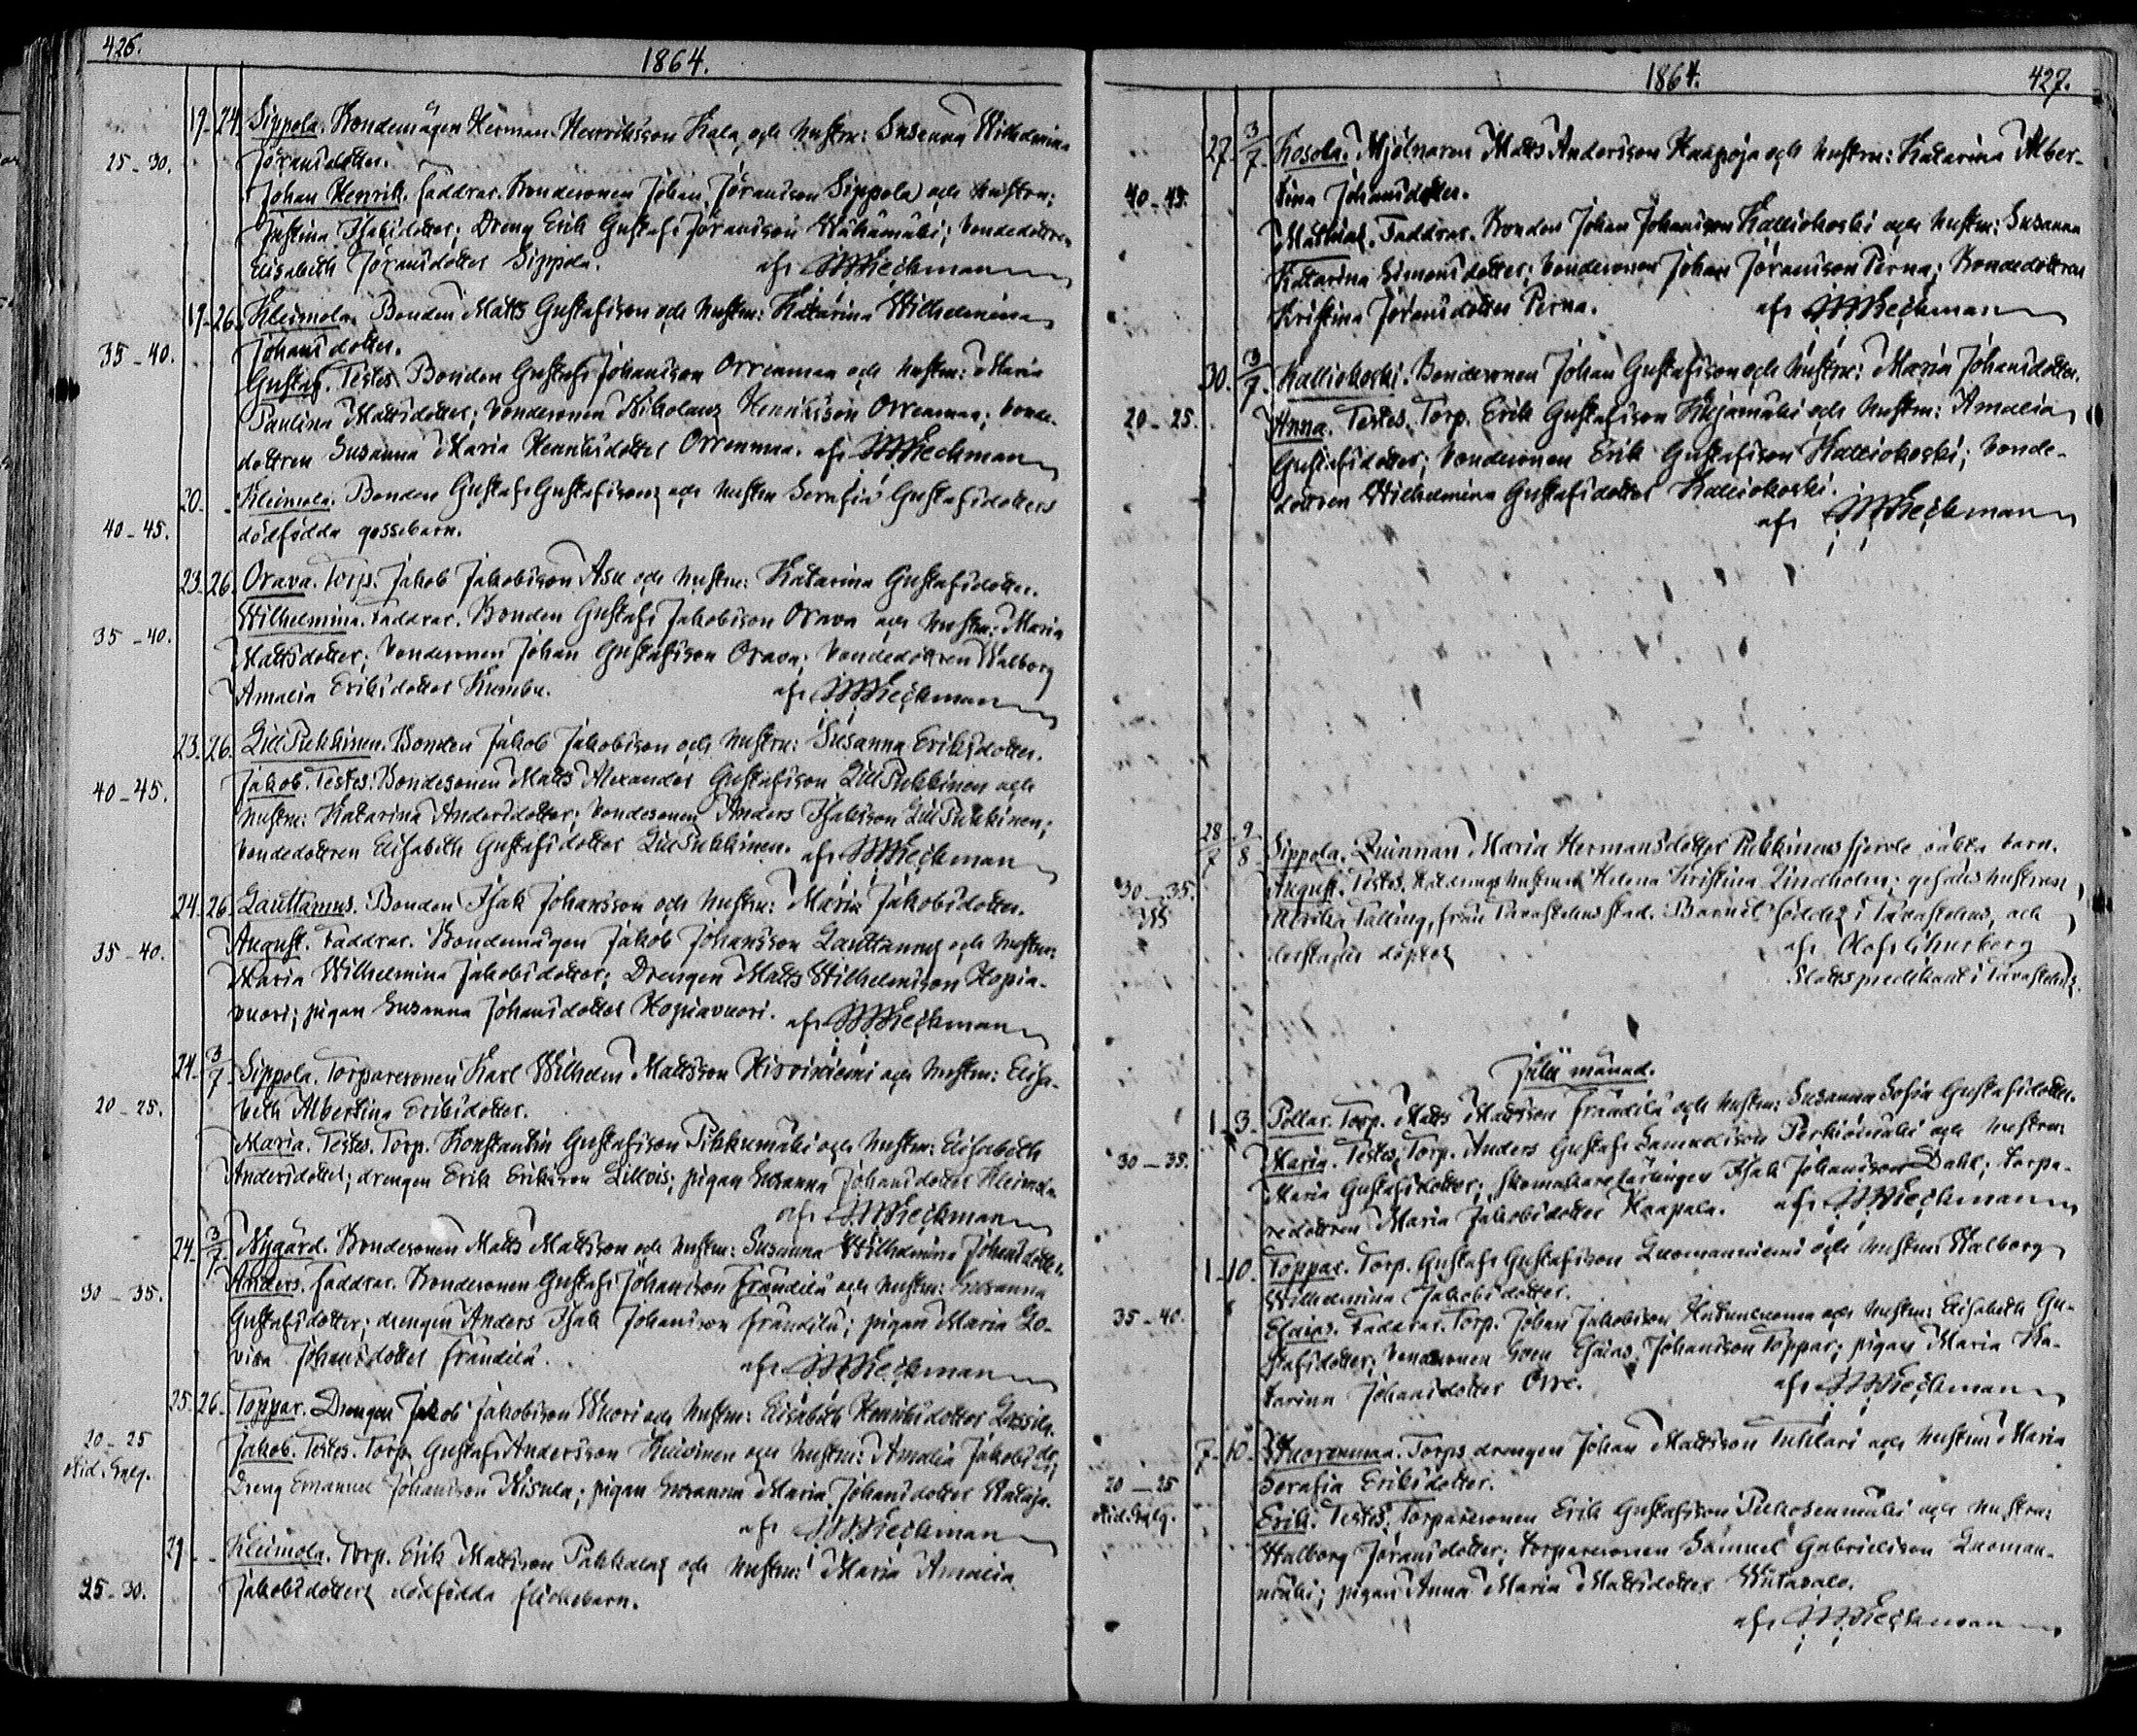 426.
1864.
19. 24. Sippola. Bondemågen Herman Henriksson Kala och hustru: Susanna Wilhelmina
25-30. Jöransdotter.
Johan Henrik. Faddrar. Bondesonen Johan Jöransson Sippola och hustru:
Justina Isaksdotter; Dreng Erik Gustaf Jöransson Wähämäki; bondedottren
Elisabeth Jöransdotter Sippola. af
19. 26. Kleimola. Bonden Matts Gustafsson och hustru: Katarina Wilhelmina
35-40. Johansdotter.
Gustaf. Testes. Bonden Gustaf Johansson Orrenmaa och hustru: Maria
Paulina Mattsdotter; bondesonen Nikolaus Henriksson Orrenmaa; bonde-
dottren Susanna Maria Henriksdotter Orrenmaa. af
20. - Kleimola. Bonden Gustaf Gustafssons och hustru Serafia Gustafsdotters
40-45. dödfödda gossebarn.
23. 26. Orava. Torp. Jakob Jakobsson Asu och hustru: Katarina Gustafsdotter.
35-40. Wilhelmina. Faddrar. Bonden Gustaf Jakobsson Orava och hustru: Maria
Mattsdotter; bondesonen Johan Gustafsson Orava; bondedottren Walborg
Amalia Eriksdotter Kumbu. af
23. 26. LillPukkinen. Bonden Jakob Jakobsson och hustru: Susanna Eriksdotter.
40-45. Jakob. Testes. Bondesonen Matts Alexander Gustafsson LillPukkinen och
hustru: Katarina Andersdotter; bondesonen Anders Isaksson LillPukkinen;
bondedottren Elisabeth Gustafsdotter LillPukkinen. af
24. 26. Lauttamus. Bonden Isak Johansson och hustru: Maria Jakobsdotter.
35-40. August. Faddrar. Bondemågen Jakob Johansson Lauttamus och hustru:
Maria Wilhelmina Jakobsdotter; Drengen Matts Wilhelmsson Hopia-
vuori; pigan Susanna Johansdotter Hopiavuori. af
24. 3/7 Sippola. Torparesonen Karl Wilhelm Mattsson Hirviniemi och hustru: Elisa-
20-25. beth Albertina Eriksdotter.
Maria. Testes. Torp. Konstantin Gustafsson Pikkumäki och hustru: Elisabeth
Andersdotter; drengen Erik Eriksson Lillvis; pigan Susanna Johansdotter Kleimola.
af
24. 3/7 Nygård. Bondesonen Matts Mattsson och hustru: Susanna Wilhelmina Johansdotter.
30-35. Anders. Faddrar. Bondesonen Gustaf Johansson Frändilä och hustru: Susanna
Gustafsdotter; drengen Anders Isak Johansson Frändilä; pigan Maria Lo-
visa Johansdotter Frändilä. af
25. 26. Toppar. Drengen Jakob Jakobsson Wuori och hustru: Elisabeth Henriksdotter Lassila.
20-25 Jakob. Testes. Torp. Gustaf Andersson och hustru: Amalia Jakobs dr;
Dreng Emanuel Johansson Nisula; pigan Susanna Maria Johansdotter Wataja.
af
29. - Kleimola. Torp. Erik Mattsson Pakkalas och hustru: Maria Amalia
25-30. Jakobsdotters dödfödda flickebarn.
1864. 427.
27. 3/7 Kosola. Mjölnaren Matts Andersson Haapoja och hustru: Katarina Alber-
40-45. tina Johansdotter.
Mathias. Faddrar. Bonden Johan Johansson Kalliokoski och hustru: Susanna
Katarina Simonsdotter; bondesonen Johan Jöransson Perna; Bondedottren
Kristina Jöransdotter Perna. af
30. 3/7 Kalliokoski. Bondesonen Johan Gustafsson och hustru: Maria Johansdotter.
20-25. Anna. Testes. Torp. Erik Gustafsson Kujamäki och hustru: Amalia
Gustafsdotter; bondesonen Erik Gustafsson Kalliokoski; bonde-
dottren Wilhelmina Gustafsdotter Kalliokoski.
af
28/7 9/8 Sippola. Quinnan Maria Hermansdotter Pukkinens fjerde oäkta barn.
30-35. August. Testes. Helena Kristina Lindholm;
från Tavastehus stad. Barnet föddes i Tavastehus, och
döptes af
Slottspredikant i Tavastehus.
Julii månad.
1. 3. Pollar. Torp. Matts Mattsson Frändilä och hustru: Susanna Sofia Gustafsdotter.
30-35. Maria. Testes. Torp. Anders Gustaf Samuelsson Perkiömäki och hustru:
Maria Gustafsdotter; skomakarelärlingen Isak Johansson Dahl; torpa-
redottren Maria Jakobsdotter Haapala. af
1. 10. Toppar. Torp. Gustaf Gustafsson Luomanniemi och hustru: Walborg
Wilhelmina Jakobsdotter.
35-40. Esaias. Faddrar. Torp. Johan Jakobsson och hustru: Elisabeth Gu-
stafsdotter; bondesonen Sven Esaias Johansson Toppar; pigan Maria Ka-
tarina Johansdotter Orre. af
7. 10. Wuorenmaa. Torpsdrengen Johan Mattsson Tuhlari och hustru: Maria
20-25 Serafia Eriksdotter.
Erik. Testes. Torparesonen Erik Gustafsson och hustru:
Walborg Jöransdotter; torparesonen Samuel Gabrielsson Luoman-
mäki; pigan Anna Maria Mattsdotter
af